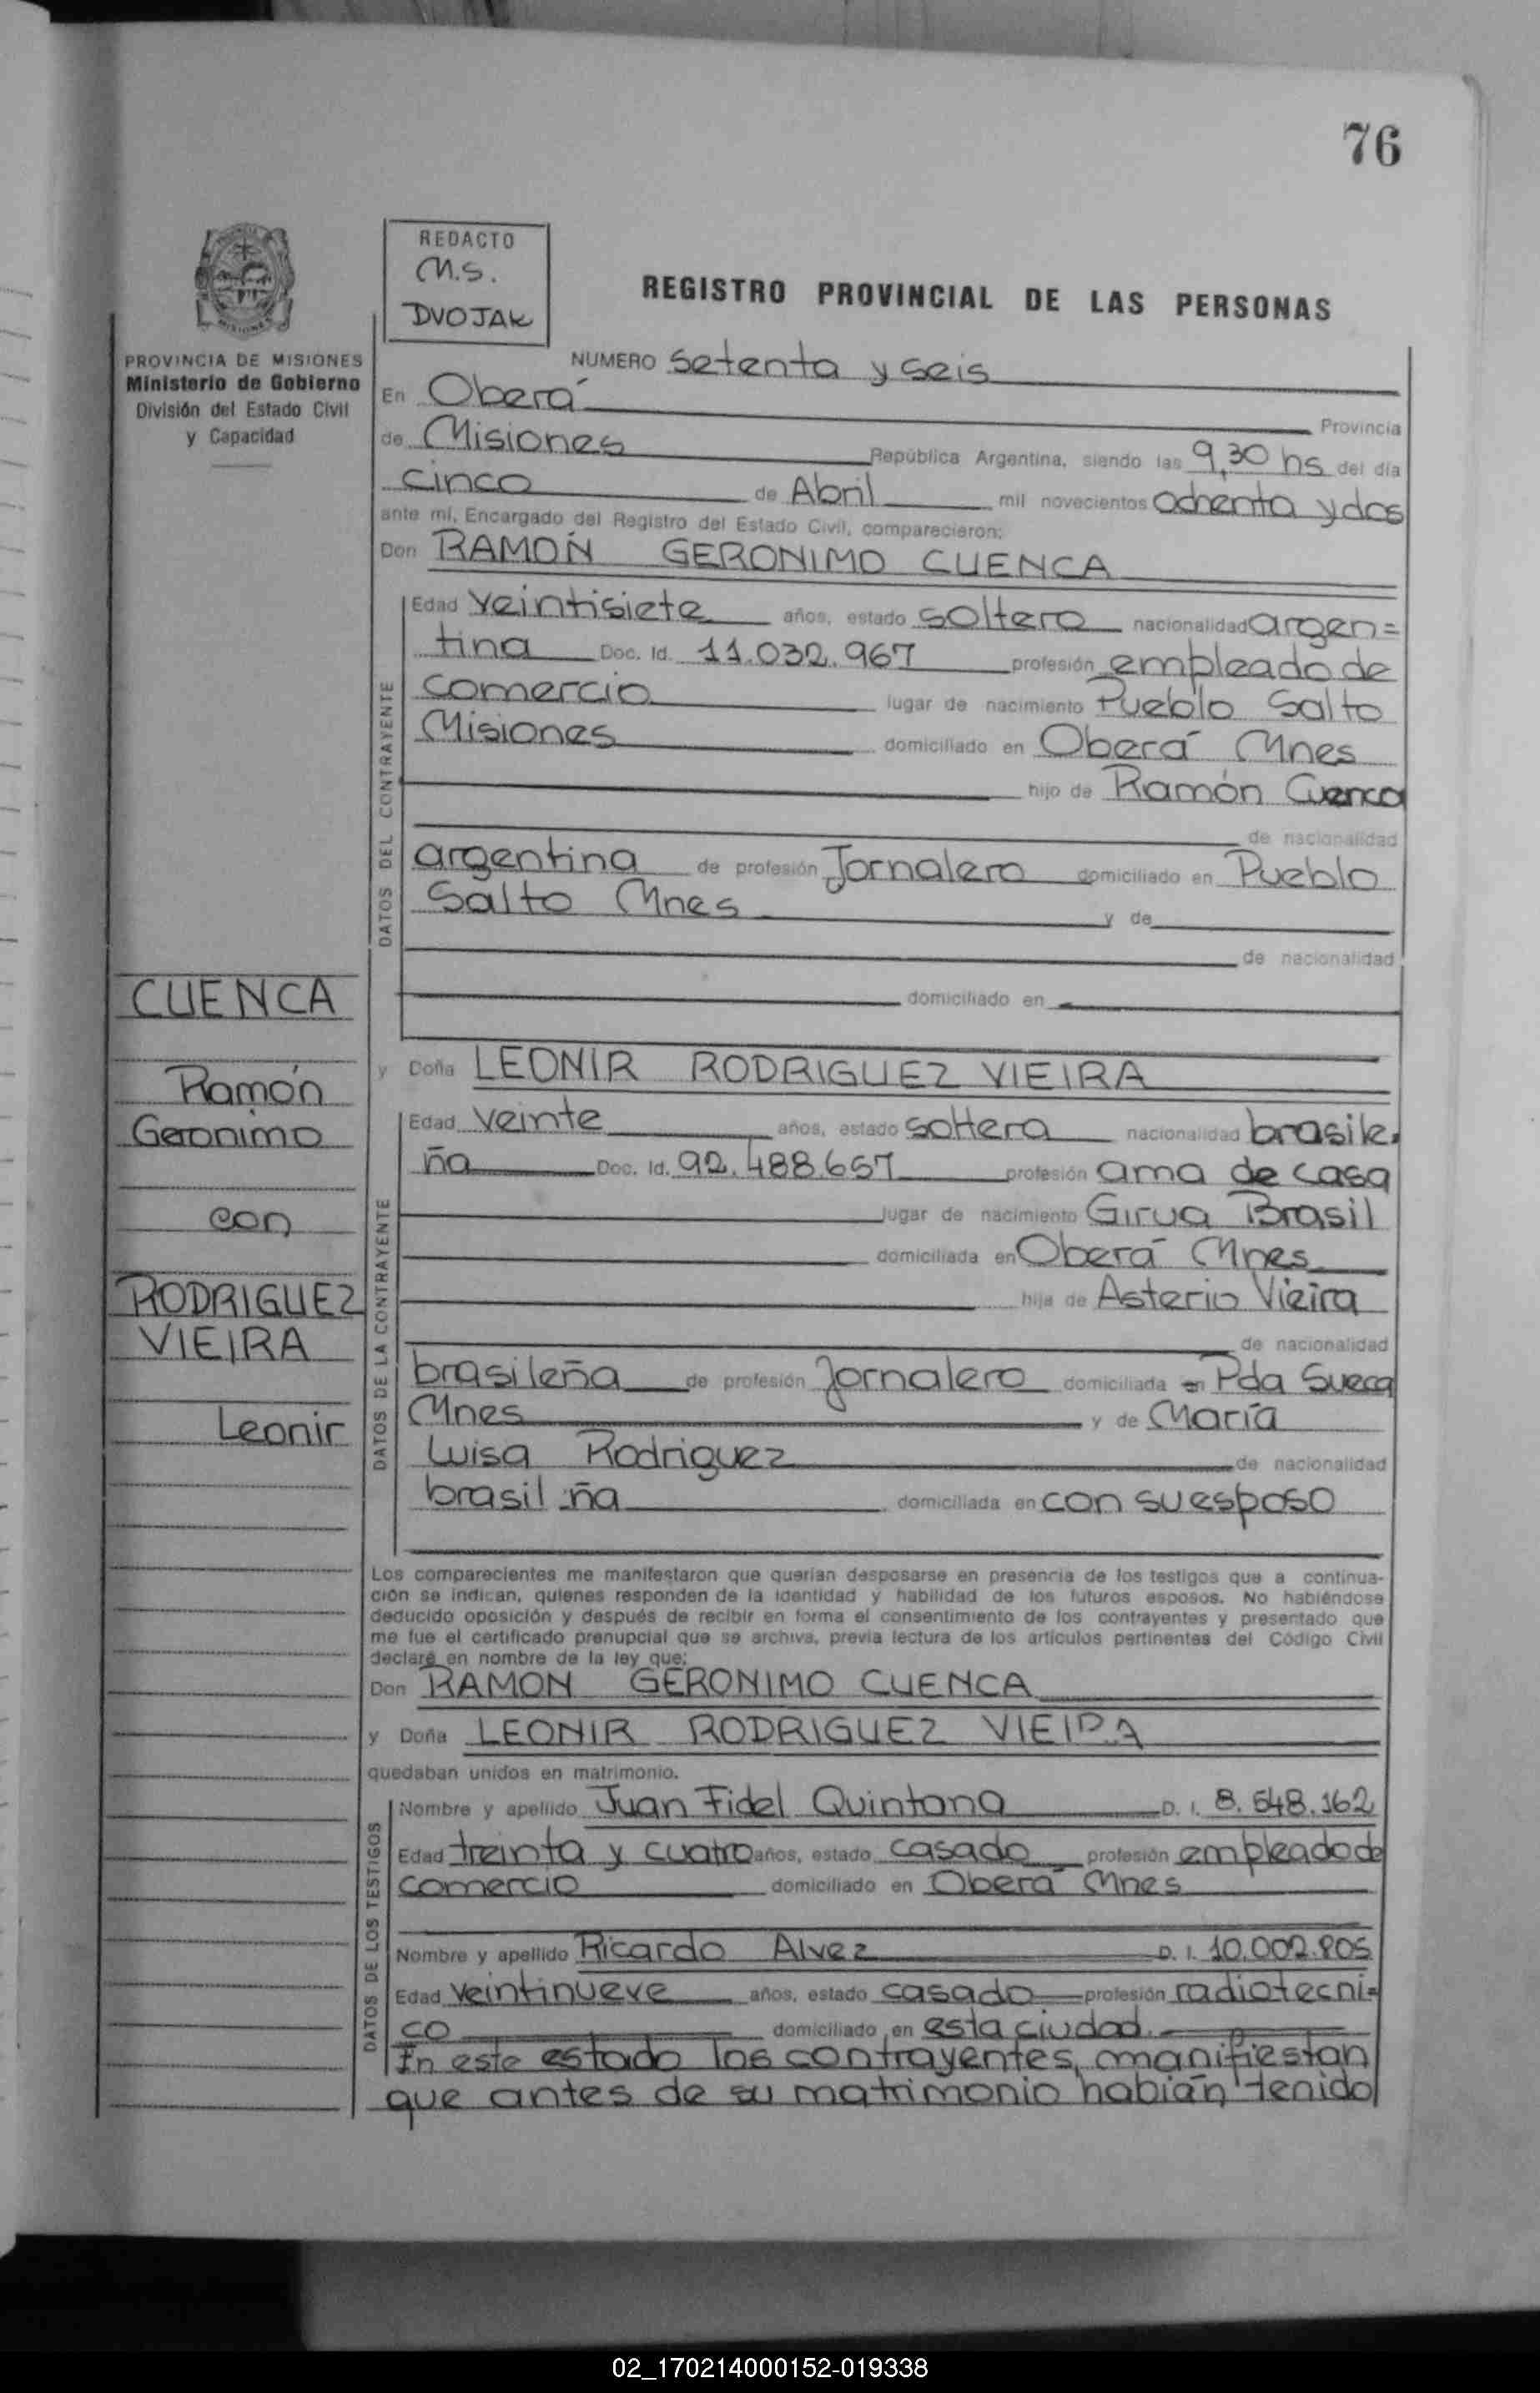 76
REDACTO
M.S.
DVOJAK
REGISTRO PROVINCIAL DE LAS PERSONAS
PROVINCIA DE MISIONES
Ministerio de Gobierno
División del Estado Civil
y Capacidad
NUMERO setenta y seis
En Oberá
Provincia
de Misiones República Argentina, siendo las 9,30 hs del día
cinco de Abril mil novecientos ochenta y dos
ante mí, Encargado del Registro del Estado Civil, comparecieron:
Don RAMON GERONIMO CUENCA
DATOS DEL CONTRAYENTE
Edad veintisiete años, estado soltero nacionalidad argen=
tina Doc. Id. 11.032.967 profesión empleado de
comercio lugar de nacimiento Pueblo Salto
Misiones domiciliado en Oberá Mnes
hijo de Ramón Cuenca
de nacionalidad
argentina de profesión Jornalero domiciliado en Pueblo
Salto Mnes y de
de nacionalidad
domiciliado en
y Doña LEONIR RODRIGUEZ VIEIRA
DATOS DE LA CONTRAYENTE
Edad veinte años, estado soltera nacionalidad brasile
ña Doc. Id. 92.488.657 profesión ama de casa
lugar de nacimiento Girua Brasil
domiciliada en Oberá Mnes
hija de Asterio Vieira
de nacionalidad
brasileña de profesión Jornalero domiciliada en Pda Sueca
Mnes y de María
Luisa Rodriguez de nacionalidad
brasil ña domiciliada en con su esposo
CUENCA
Ramón
Geronimo
con
RODRIGUEZ
VIEIRA
Leonir
Los comparecientes me manifestaron que querían desposarse en presencia de los testigos que a continua-
ción se indican, quienes responden de la identidad y habilidad de los futuros esposos. No habiéndose
deducido oposición y después de recibir en forma el consentimiento de los contrayentes y presentado que
me fue el certificado prenupcial que se archiva, previa lectura de los artículos pertinentes del Código Civil
declaré en nombre de la ley que:
Don RAMON GERONIMO CUENCA
y Doña LEONIR RODRIGUEZ VIEIRA
quedaban unidos en matrimonio.
DATOS DE LOS TESTIGOS
Nombre y apellido Juan Fidel Quintana D. I. 8.548.162
Edad treinta y cuatro años, estado casado profesión empleado de
comercio domiciliado en Oberá Mnes
Nombre y apellido Ricardo Alvez D. I. 10.002.805
Edad veintinueve años, estado casado profesión radiotecni=
co domiciliado en esta ciudad.
En este estado los contrayentes, manifiestan
que antes de su matrimonio habian tenido
02_170214000152-019338